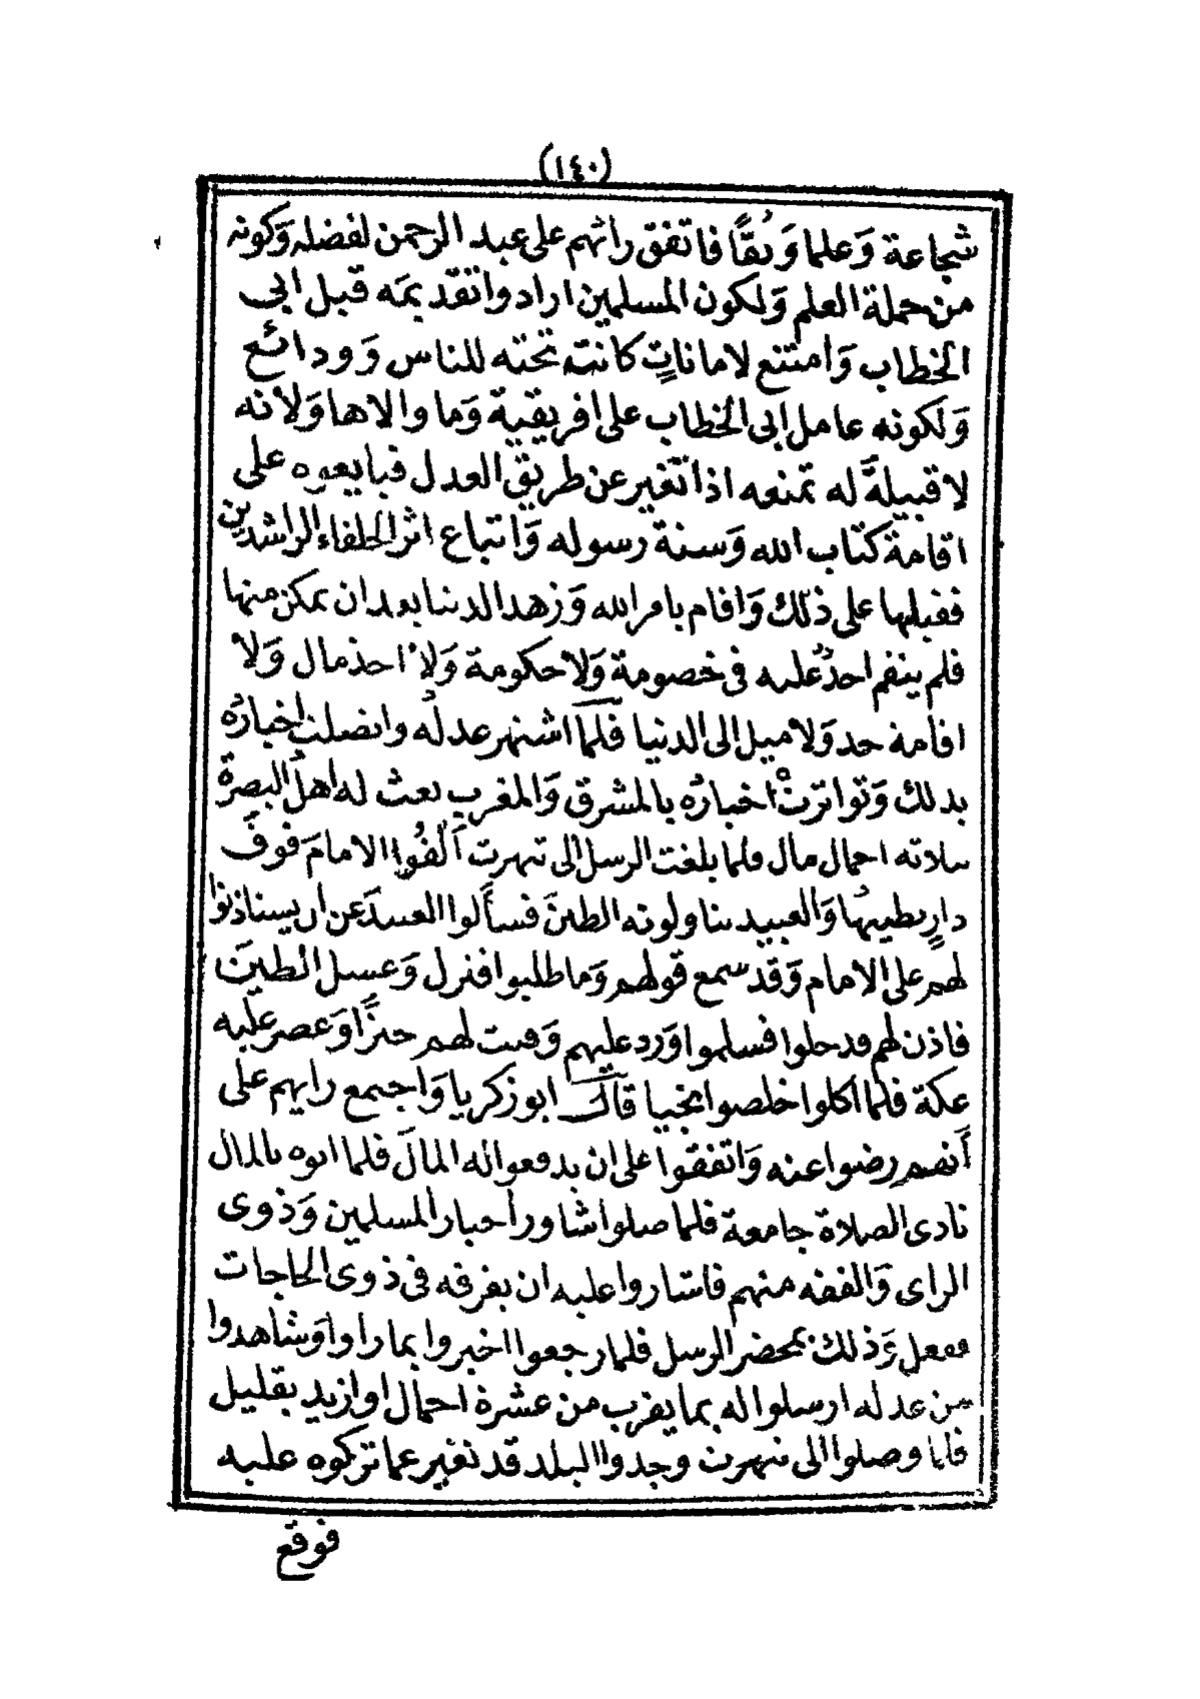 (١٤٠)
شجاعة وَعلما وَتقًّا فاتفق رأيهم على عبد الرحمن لفضله وَكونه
من حملة العلم وَلكون المسلمين ارادوا تقديمَه قبل ابى
الخطاب وَامتنع لاماناتٍ كانت تحته للناس وَودائع
وَلكونه عامل ابى الخطاب على افريقية وَما والاها وَلانه
لا قبيلةَ له تمنعه اذا تغير عن طريق العدل فبايعوه على
اقامة كتاب الله وَسنة رسوله وَاتباع اثر الخلفاء الراشدين
فقبلها على ذلك وَاقام بامر الله وَزهد الدنيا بعد ان تمكن منها
فلم ينقم احدٌ عليه فى خصومة وَلا حكومة وَلا اخذ مال وَلا
اقامة حد وَلا ميل الى الدنيا فلمّا اشتهر عدلُه واتصلت اخبارُه
بذلك وَتواترتْ اخبارُه بالمشرق وَالمغرب بعث له اهلُ البصرة
ثلاثه احمال مال فلما بلغت الرسل الى تيهرت ألفُوا الامامَ فوقَ
دارٍ يطينُها وَالعبيد يناولونه الطينَ فسألوا العبيدَ عن ان يستاذنوا
لهم على الامام وَقد سمع قولهم وَما طلبوا فنزل وَغسل الطينَ
فاذن لهم فدخلوا فسلموا وَرد عليهم وَفت لهم خبزًا وَعصر عليه
عكة فلما اكلوا خلصوا نجيا قال ابو زكريا وَاجتمع رايهم على
أنهم رضوا عنه وَاتفقوا على ان يدفعوا اله المالَ فلما اتوه بالمال
نادى الصلاة جامعة فلما صلوا شاور أحبار المسلمين وَذوى
الراى وَالفقه منهم فاشاروا عليه ان يفرقه فى ذوى الحاجات
ففعل وَذلك بمحضر الرسل فلما رجعوا اخبروا بما راوا وَشاهدوا
من عدله ارسلوا اله بما يقرب من عشرة احمال او ازيد بقليل
فلما وصلوا الى تيهرت وجدوا البلد قد تغير عما تركوه عليه
فوقع